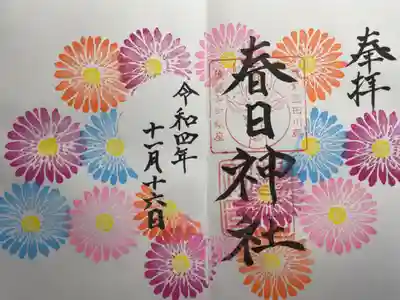 奉拝
春日神社
令和四年
十一月十六日